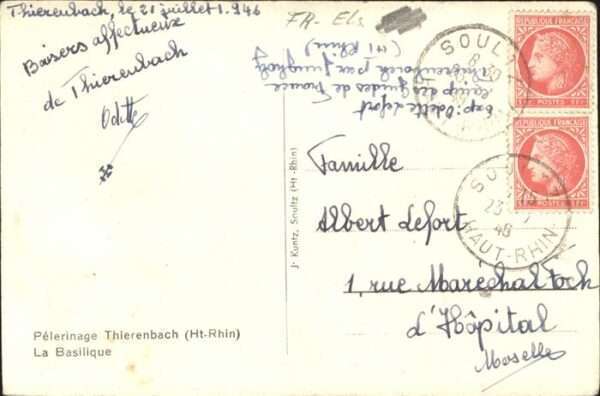 Thierenbach, le 21 juillet 1946
Baisers affectueux
de Thierenbach
Odette
FR-Els
Exp: Odette Lefort
camp des guides de France
Thierenbach par Jungholz
(Ht Rhin)
Famille
Albert Lefort
1, rue Maréchal Foch
d'Hôpital
Moselle
J. Kuntz, Soultz (Ht-Rhin)
Pélerinage Thierenbach (Ht-Rhin)
La Basilique
SOULTZ
8 30
HAUT-RHIN
SOU
23
46
HAUT-RHIN
REPUBLIQUE FRANÇAISE
POSTES
REPUBLIQUE FRANÇAISE
POSTES